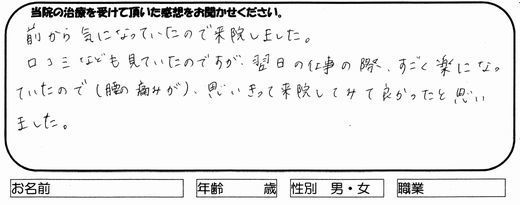 当院の治療を受けて頂いた感想をお聞かせください。
前から気になっていたので来院しました。
口コミなども見ていたのですが、翌日の仕事の際、すごく楽になっ
ていたので(腰の痛みが)、思いきって来院してみて良かったと思い
ました。
お名前 年齢 歳 性別 男・女 職業